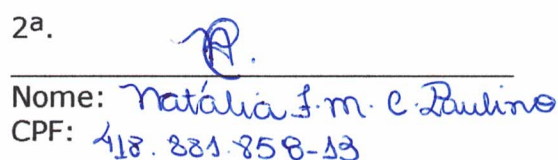 2ª.
Nome: Natália F. m. C. Paulino
CPF: 418.881.858-13